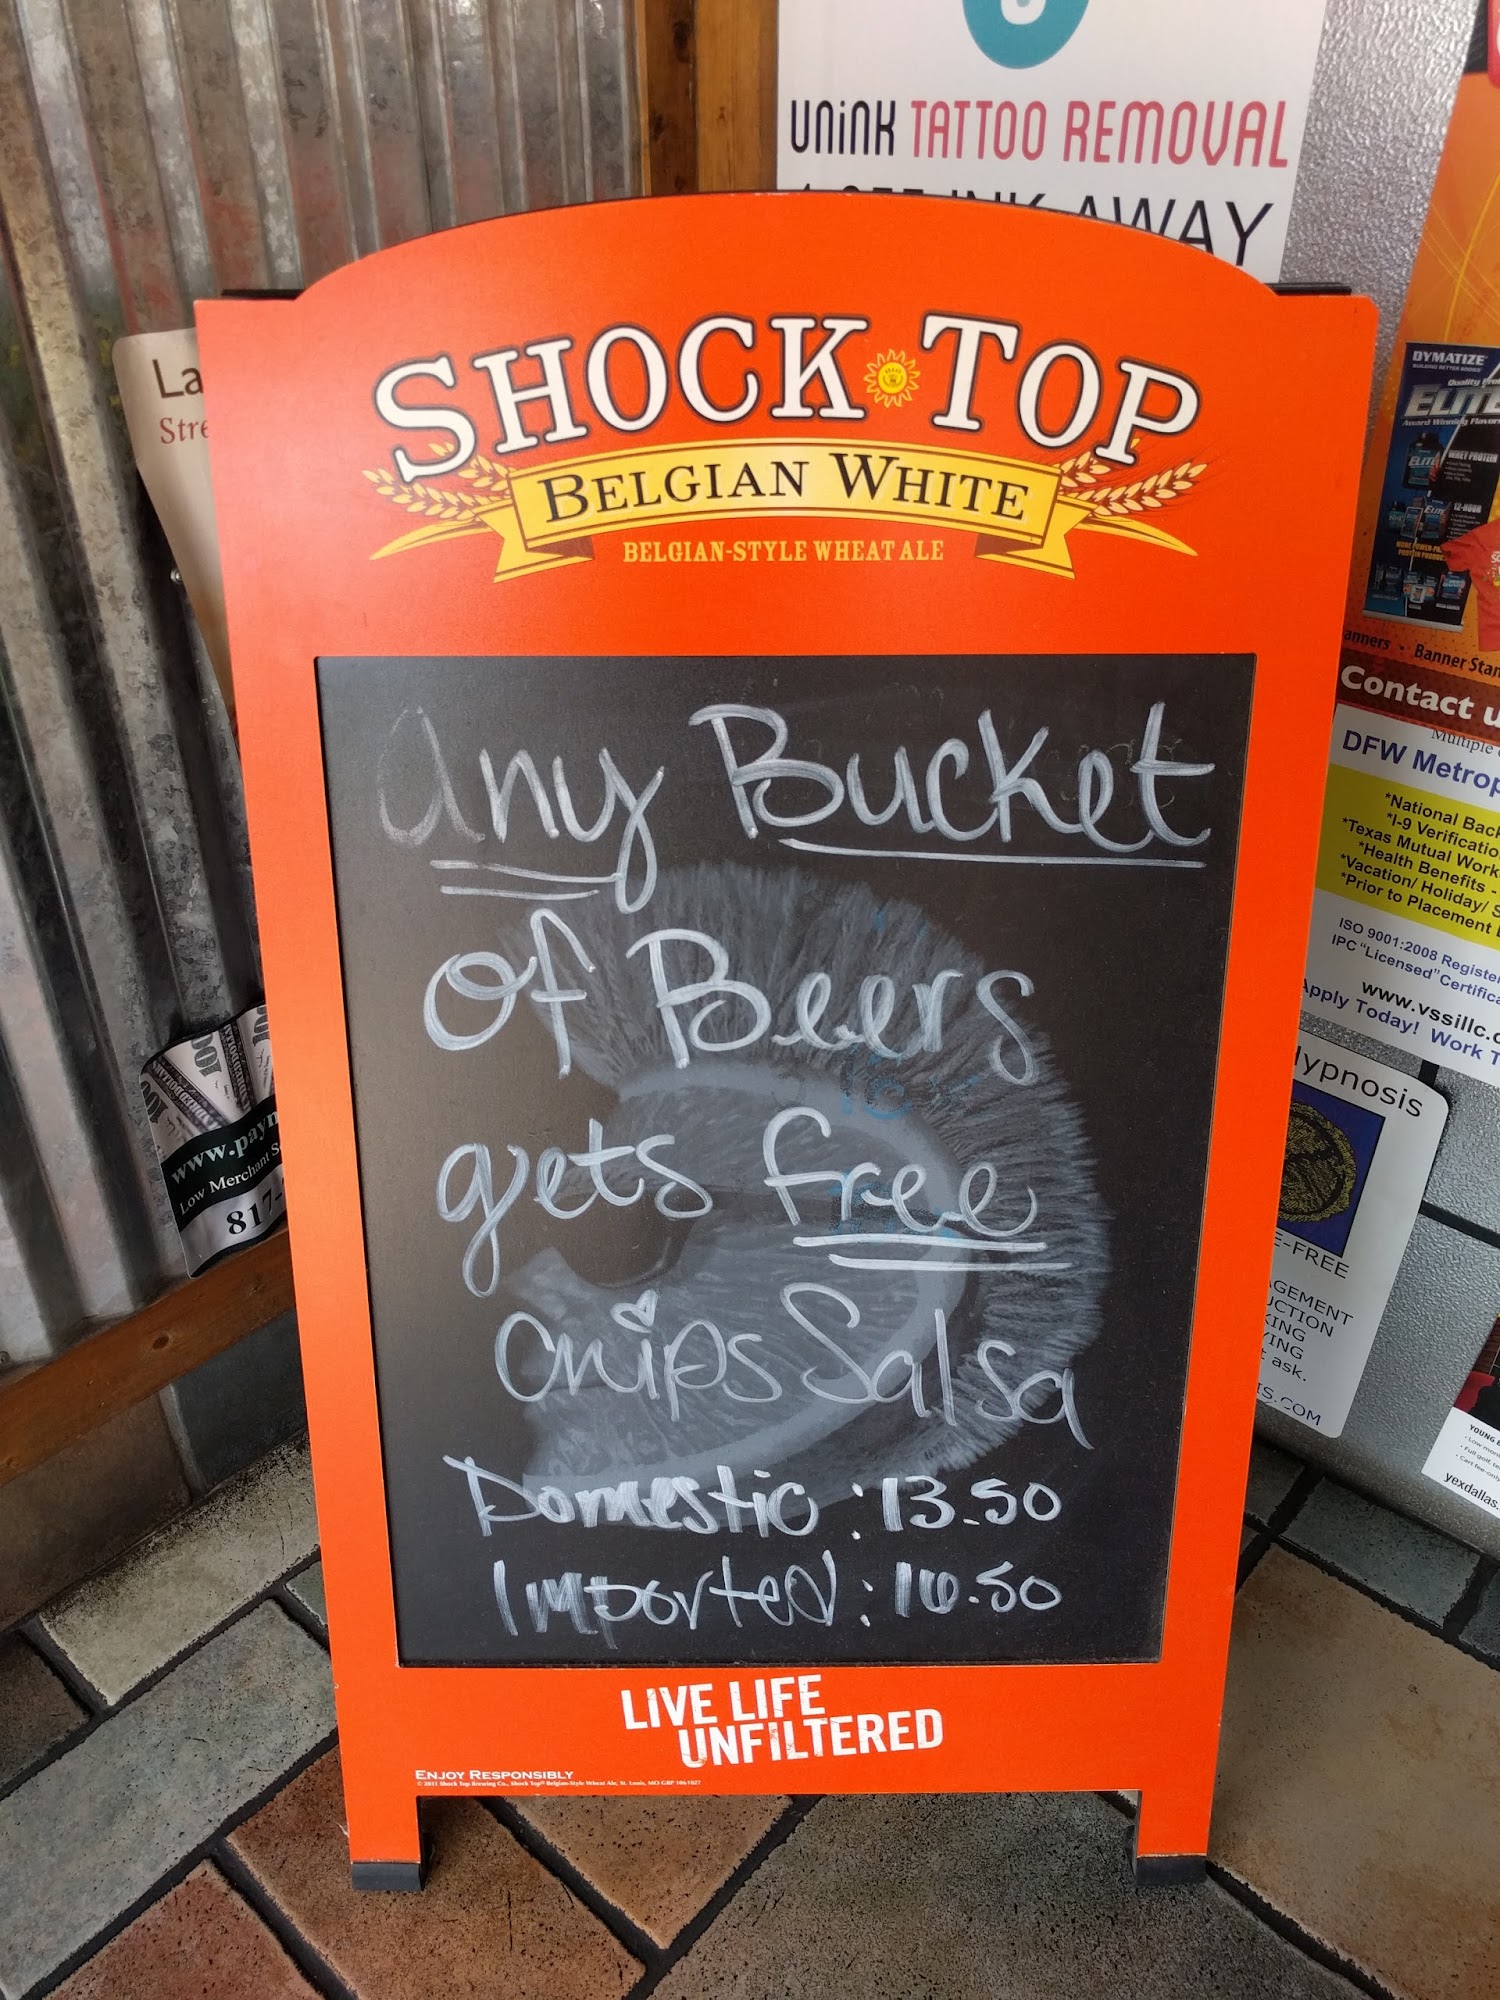 UNiNK TATTOO REMOVAL
INK-AWAY
SHOCK TOP
BELGIAN WHITE
BELGIAN-STYLE WHEAT ALE
any Bucket
of Beers
gets free
chips Salsa
Domestic : 13.50
Imported : 16.50
LIVE LIFE
UNFILTERED
ENJOY RESPONSIBLY
© 2011 Shock Top Brewing Co., Shock Top® Belgian-Style Wheat Ale, St. Louis, MO
La
Stre
100
www.payn
Low Merchant S
817-
DYMATIZE
BUILDING BETTER BODIES
ELITE
Award Winning Flavor
WHEY PROTEIN
12-HOUR
anners • Banner Stan
Contact u
Multiple
DFW Metrop
*National Back
*I-9 Verificatio
*Texas Mutual Work
*Health Benefits -
*Vacation/ Holiday/ S
*Prior to Placement
ISO 9001:2008 Registe
IPC "Licensed" Certifica
www.vssillc.c
Apply Today! Work T
Hypnosis
E-FREE
GEMENT
UCTION
KING
YING
t ask.
IS.COM
YOUNG
yexdallas.